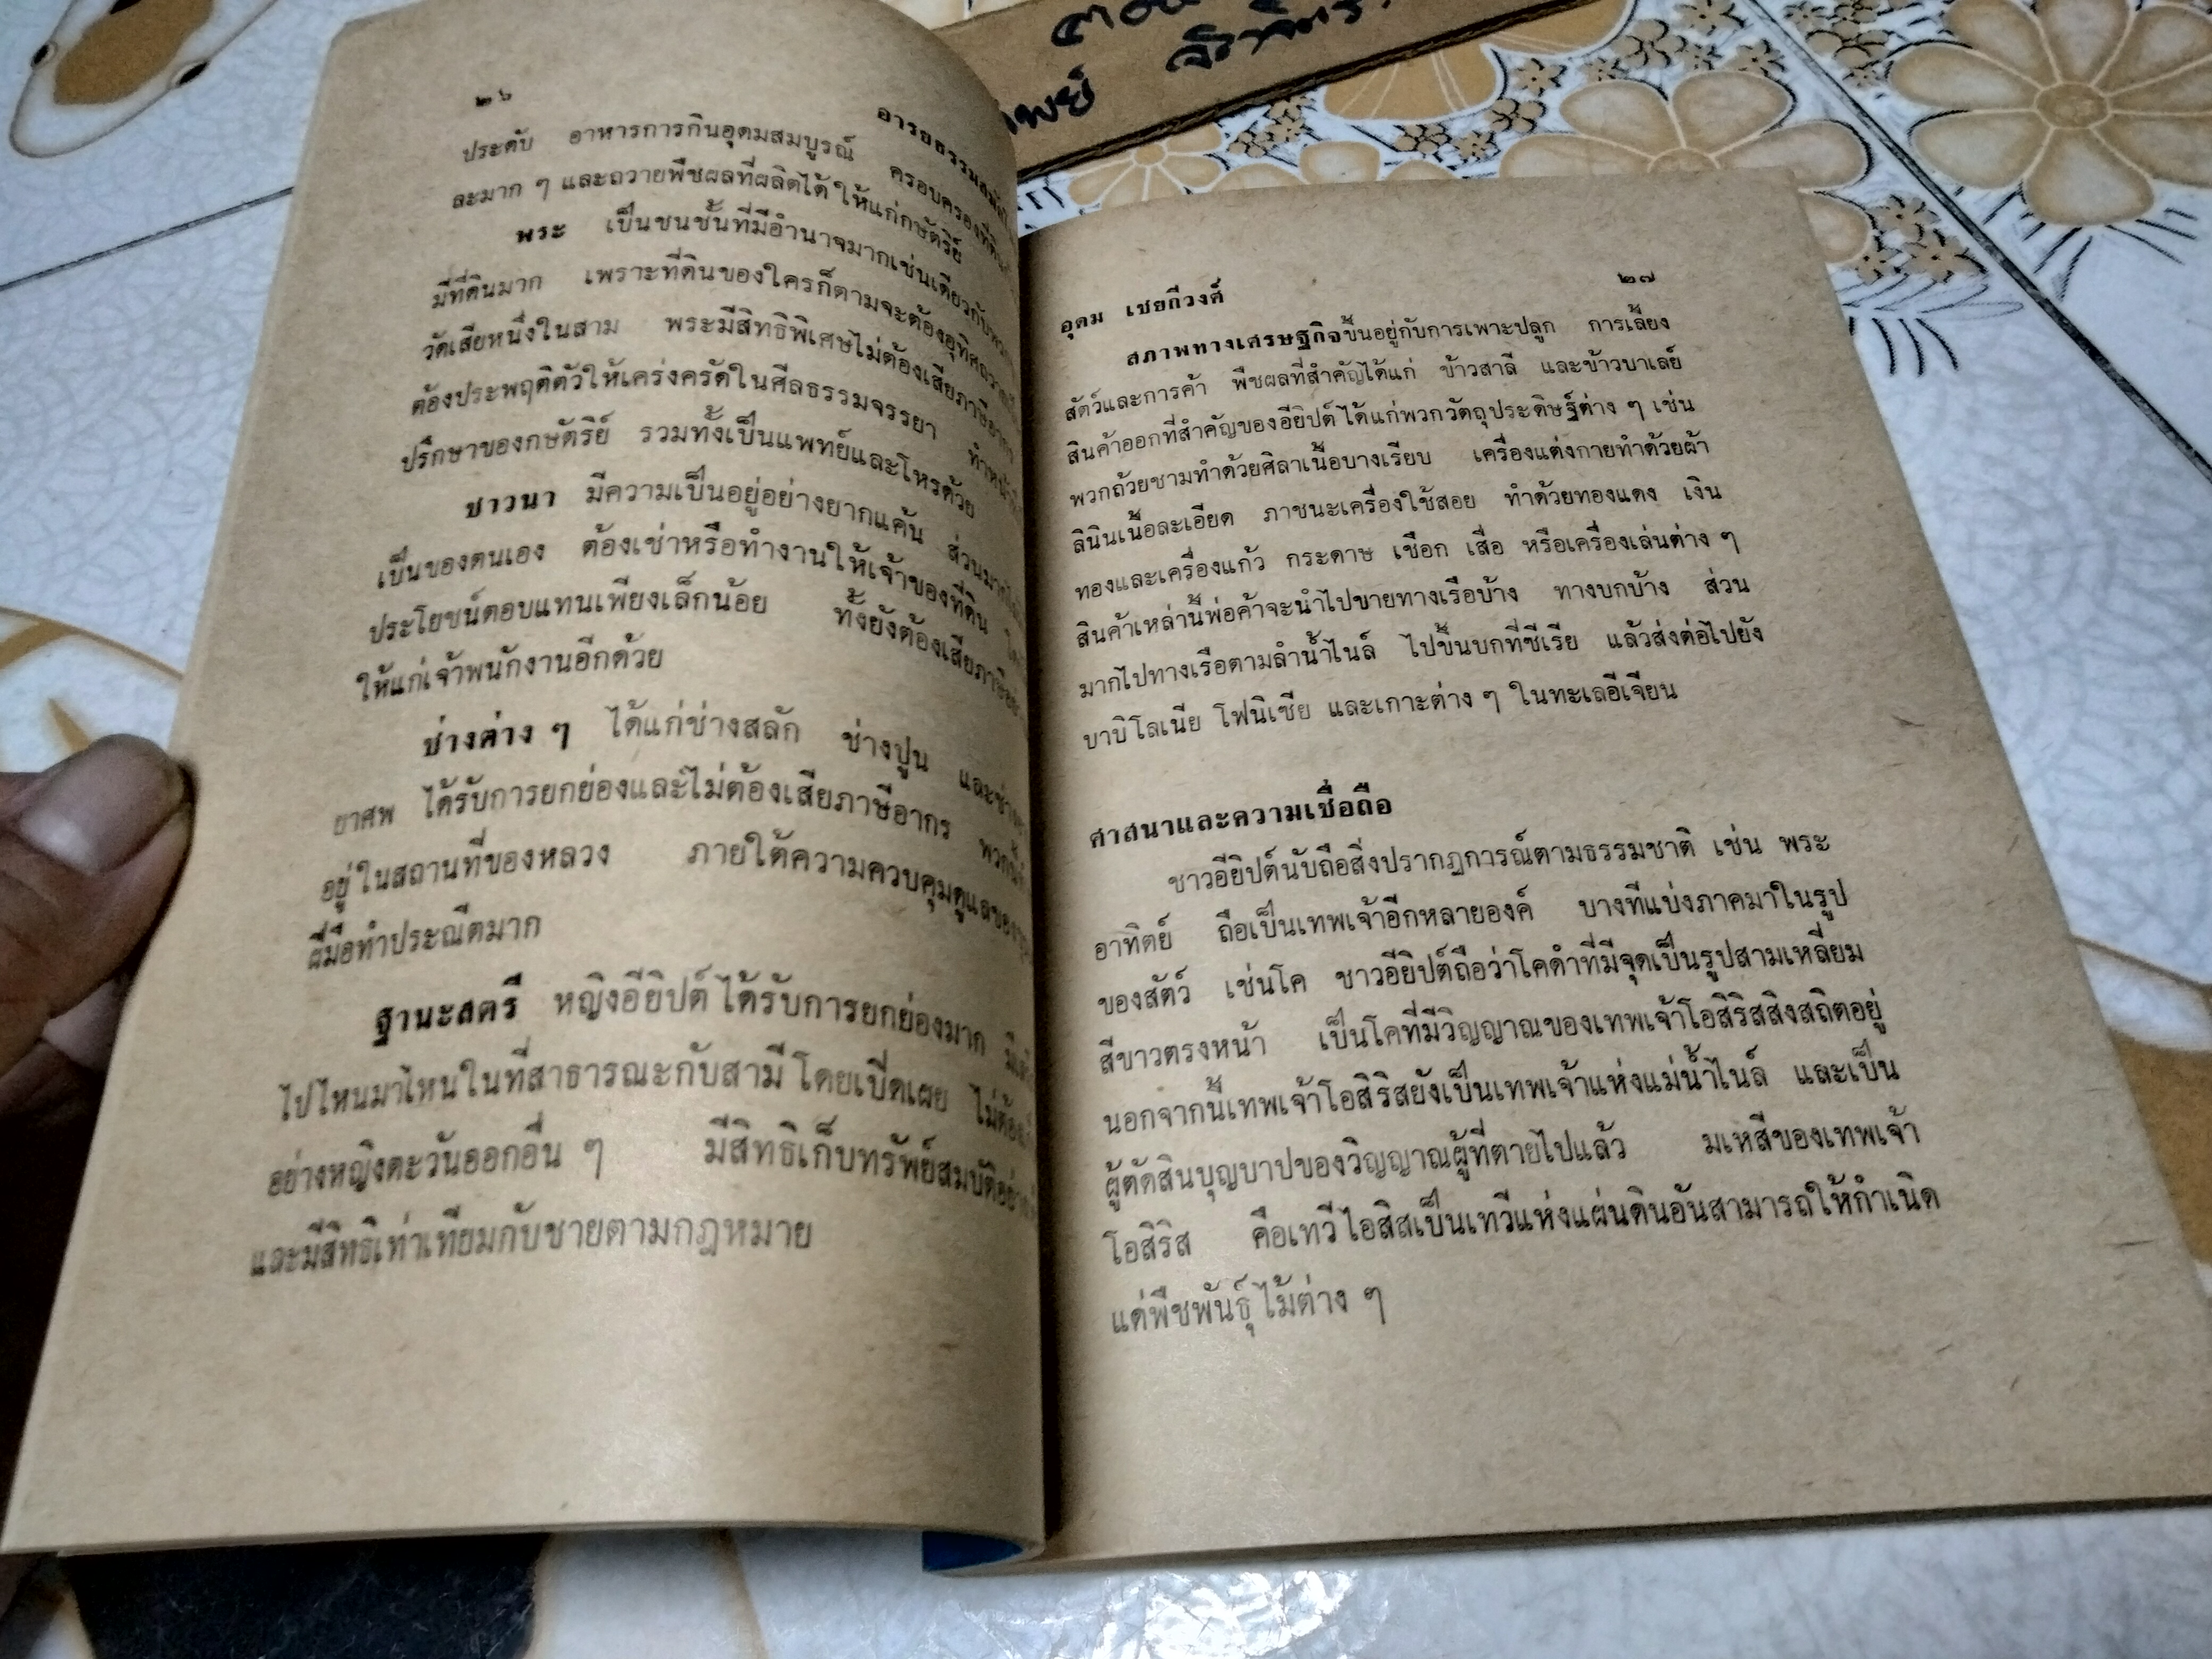 ๒๖
ประดับ อาหารการกินอุดมสมบูรณ์ ครอบครองที่ดิน
ละมาก ๆ และถวายพืชผลที่ผลิตได้ให้แก่กษัตริย์
พระ เป็นชนชั้นที่มีอำนาจมากเช่นเดียวกับ
มีที่ดินมาก เพราะที่ดินของใครก็ตามจะต้องอุทิศถวาย
วัดเสียหนึ่งในสาม พระมีสิทธิพิเศษไม่ต้องเสียภาษีอากร
ต้องประพฤติตัวให้เคร่งครัดในศีลธรรมจรรยา
ปรึกษาของกษัตริย์ รวมทั้งเป็นแพทย์และโหรด้วย
ชาวนา มีความเป็นอยู่อย่างยากแค้น
เป็นของตนเอง ต้องเช่าหรือทำงานให้เจ้าของที่ดิน
ประโยชน์ตอบแทนเพียงเล็กน้อย ทั้งยังต้องเสียภาษี
ให้แก่เจ้าพนักงานอีกด้วย
ช่างต่าง ๆ ได้แก่ช่างสลัก ช่างปูน
ยาศพ ได้รับการยกย่องและไม่ต้องเสียภาษีอากร
อยู่ในสถานที่ของหลวง ภายใต้ความควบคุมดูแลของ
ฝีมือทำประณีตมาก
ฐานะสตรี หญิงอียิปต์ได้รับการยกย่องมาก
ไปไหนมาไหนในที่สาธารณะกับสามีโดยเปิดเผย
อย่างหญิงตะวันออกอื่น ๆ มีสิทธิเก็บทรัพย์สมบัติ
และมีสิทธิเท่าเทียมกับชายตามกฎหมาย
อุดม เชยกีวงศ์
๒๗
สภาพทางเศรษฐกิจขึ้นอยู่กับการเพาะปลูก การเลี้ยง
สัตว์และการค้า พืชผลที่สำคัญได้แก่ ข้าวสาลี และข้าวบาเลย์
สินค้าออกที่สำคัญของอียิปต์ได้แก่พวกวัตถุประดิษฐ์ต่าง ๆ เช่น
พวกถ้วยชามทำด้วยศิลาเนื้อบางเรียบ เครื่องแต่งกายทำด้วยผ้า
ลินินเนื้อละเอียด ภาชนะเครื่องใช้สอย ทำด้วยทองแดง เงิน
ทองและเครื่องแก้ว กระดาษ เชือก เสื่อ หรือเครื่องเล่นต่าง ๆ
สินค้าเหล่านี้พ่อค้าจะนำไปขายทางเรือบ้าง ทางบกบ้าง ส่วน
มากไปทางเรือตามลำน้ำไนล์ ไปขึ้นบกที่ซีเรีย แล้วส่งต่อไปยัง
บาบิโลเนีย โฟนิเซีย และเกาะต่าง ๆ ในทะเลอีเจียน
ศาสนาและความเชื่อถือ
ชาวอียิปต์นับถือสิ่งปรากฏการณ์ตามธรรมชาติ เช่น พระ
อาทิตย์ ถือเป็นเทพเจ้าอีกหลายองค์ บางทีแบ่งภาคมาในรูป
ของสัตว์ เช่นโค ชาวอียิปต์ถือว่าโคดำที่มีจุดเป็นรูปสามเหลี่ยม
สีขาวตรงหน้า เป็นโคที่มีวิญญาณของเทพเจ้าโอสิริสสิงสถิตอยู่
นอกจากนี้เทพเจ้าโอสิริสยังเป็นเทพเจ้าแห่งแม่น้ำไนล์ และเป็น
ผู้ตัดสินบุญบาปของวิญญาณผู้ที่ตายไปแล้ว มเหสีของเทพเจ้า
โอสิริส คือเทวีไอสิสเป็นเทวีแห่งแผ่นดินอันสามารถให้กำเนิด
แด่พืชพันธุ์ไม้ต่าง ๆ